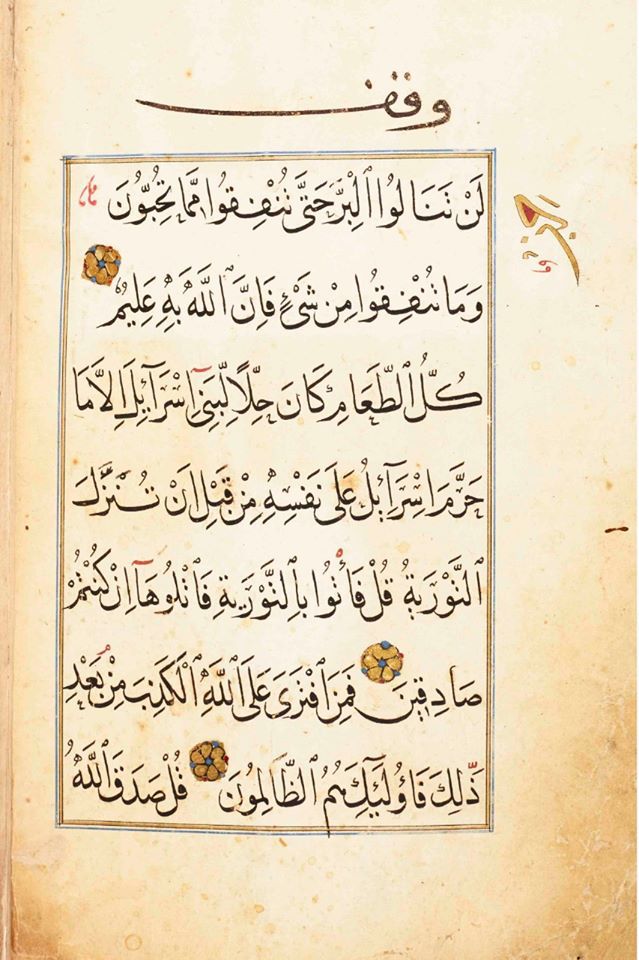 وقف
لَنْ تَنَالُوا الْبِرَّ حَتَّى تُنْفِقُوا مِمَّا تُحِبُّونَ
الجزء
وَمَا تُنْفِقُوا مِنْ شَيْءٍ فَاِنَّ اللّٰهَ بِهِ عَلِيمٌ
كُلُّ الطَّعَامِ كَانَ حِلًّا لِبَنِي اِسْرَآئِلَ اِلَّا مَا
حَرَّمَ اِسْرَآئِلُ عَلَى نَفْسِهِ مِنْ قَبْلِ اَنْ تُنَزَّلَ
التَّوْرٰيةُ قُلْ فَأْتُوا بِالتَّوْرٰيةِ فَاتْلُوهَآ اِنْ كُنْتُمْ
صَادِقِينَ فَمَنِ افْتَرَى عَلَى اللّٰهِ الْكَذِبَ مِنْ بَعْدِ
ذٰلِكَ فَاُولٰٓئِكَ هُمُ الظَّالِمُونَ قُلْ صَدَقَ اللّٰهُ